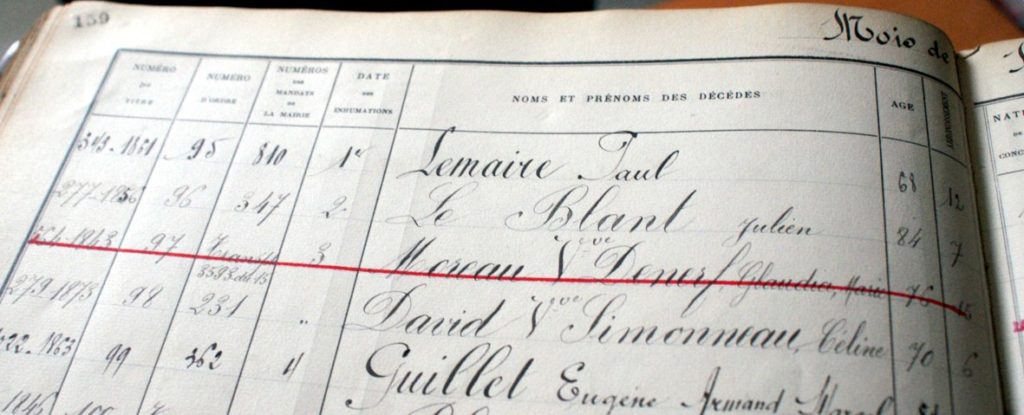 159
Mois de
NUMÉRO DU TITRE NUMÉRO D'ORDRE NUMÉROS DES MANDATS DE LA MAIRIE DATE DES INHUMATIONS NOMS ET PRÉNOMS DES DÉCÉDÉS AGE ARRONDISSEMENT
343-1851 95 810 1er Lemaire Paul 68 12
277-1856 96 347 2 Le Blant Julien 84 7
1943 97 3 Moreau Vve Denerf, Glaudia, Marie 76 15
279-1873 98 231 " David Vve Simonneau, Céline 70 6
22-1863 99 362 4 Guillet Eugène Armand Marcel